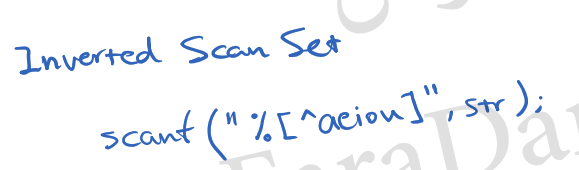 Inverted Scan Set
scanf("%[^aeiou]", str);